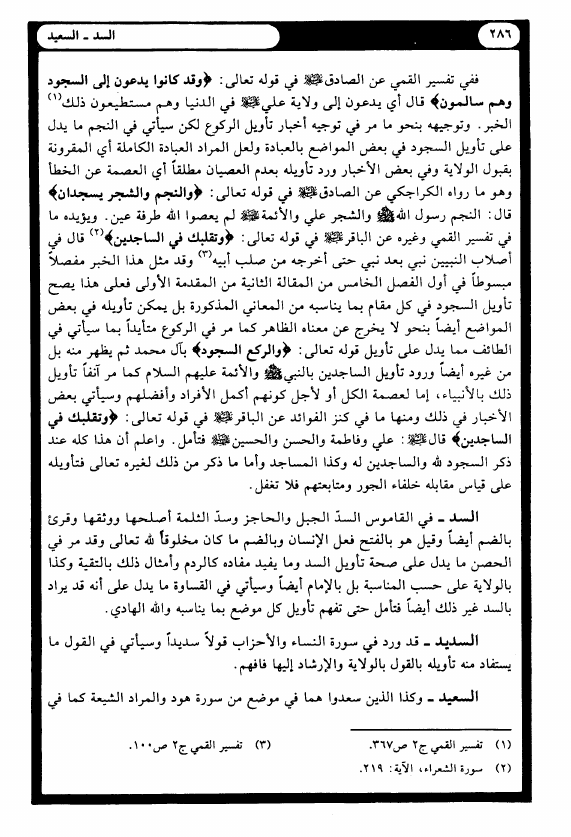 ٢٨٦
السد ـ السعيد
ففي تفسير القمي عن الصادق ﷺ في قوله تعالى: ﴿وقد كانوا يدعون إلى السجود
وهم سالمون﴾ قال أي يدعون إلى ولاية علي ﷺ في الدنيا وهم مستطيعون ذلك(١)
الخبر. وتوجيهه بنحو ما مر في توجيه أخبار تأويل الركوع لكن سيأتي في النجم ما يدل
على تأويل السجود في بعض المواضع بالعبادة ولعل المراد العبادة الكاملة أي المقرونة
بقبول الولاية وفي بعض الأخبار ورد تأويله بعدم العصيان مطلقاً أي العصمة عن الخطأ
وهو ما رواه الكراجكي عن الصادق ﷺ في قوله تعالى: ﴿والنجم والشجر يسجدان﴾
قال: النجم رسول الله ﷺ والشجر علي والأئمة ﷺ لم يعصوا الله طرفة عين. ويؤيده ما
في تفسير القمي وغيره عن الباقر ﷺ في قوله تعالى: ﴿وتقلبك في الساجدين﴾(٢) قال في
أصلاب النبيين نبي بعد نبي حتى أخرجه من صلب أبيه(٣) وقد مثل هذا الخبر مفصلاً
مبسوطاً في أول الفصل الخامس من المقالة الثانية من المقدمة الأولى فعلى هذا يصح
تأويل السجود في كل مقام بما يناسبه من المعاني المذكورة بل يمكن تأويله في بعض
المواضع أيضاً بنحو لا يخرج عن معناه الظاهر كما مر في الركوع متأيداً بما سيأتي في
الطائف مما يدل على تأويل قوله تعالى: ﴿والركع السجود﴾ بآل محمد ثم يظهر منه بل
من غيره أيضاً ورود تأويل الساجدين بالنبي ﷺ والأئمة عليهم السلام كما مر آنفاً تأويل
ذلك بالأنبياء، إما لعصمة الكل أو لأجل كونهم أكمل الأفراد وأفضلهم وسيأتي بعض
الأخبار في ذلك ومنها ما في كنز الفوائد عن الباقر ﷺ في قوله تعالى: ﴿وتقلبك في
الساجدين﴾ قال ﷺ: علي وفاطمة والحسن والحسين ﷺ فتأمل. واعلم أن هذا كله عند
ذكر السجود لله والساجدين له وكذا المساجد وأما ما ذكر من ذلك لغيره تعالى فتأويله
على قياس مقابله خلفاء الجور ومتابعتهم فلا تغفل.
السد ـ في القاموس السدّ الجبل والحاجز وسدّ الثلمة أصلحها ووثقها وقرئ
بالضم أيضاً وقيل هو بالفتح فعل الإنسان وبالضم ما كان مخلوقاً لله تعالى وقد مر في
الحصن ما يدل على صحة تأويل السد وما يفيد مفاده كالردم وأمثال ذلك بالتقية وكذا
بالولاية على حسب المناسبة بل بالإمام أيضاً وسيأتي في القساوة ما يدل على أنه قد يراد
بالسد غير ذلك أيضاً فتأمل حتى تفهم تأويل كل موضع بما يناسبه والله الهادي.
السديد ـ قد ورد في سورة النساء والأحزاب قولاً سديداً وسيأتي في القول ما
يستفاد منه تأويله بالقول بالولاية والإرشاد إليها فافهم.
السعيد ـ وكذا الذين سعدوا هما في موضع من سورة هود والمراد الشيعة كما في
(١) تفسير القمي ج٢ ص٣٦٧.
(٣) تفسير القمي ج٢ ص١٠٠.
(٢) سورة الشعراء، الآية: ٢١٩.